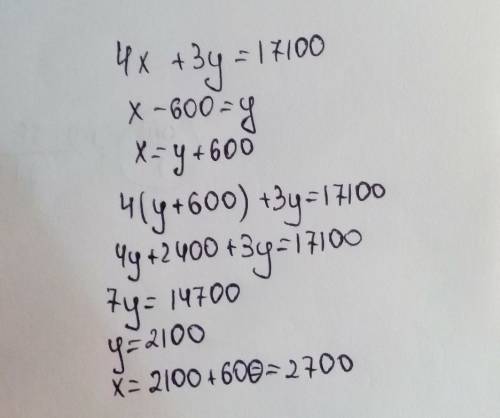 4x + 3y = 17100
x - 600 = y
x = y + 600
4(y + 600) + 3y = 17100
4y + 2400 + 3y = 17100
7y = 14700
y = 2100
x = 2100 + 600 = 2700